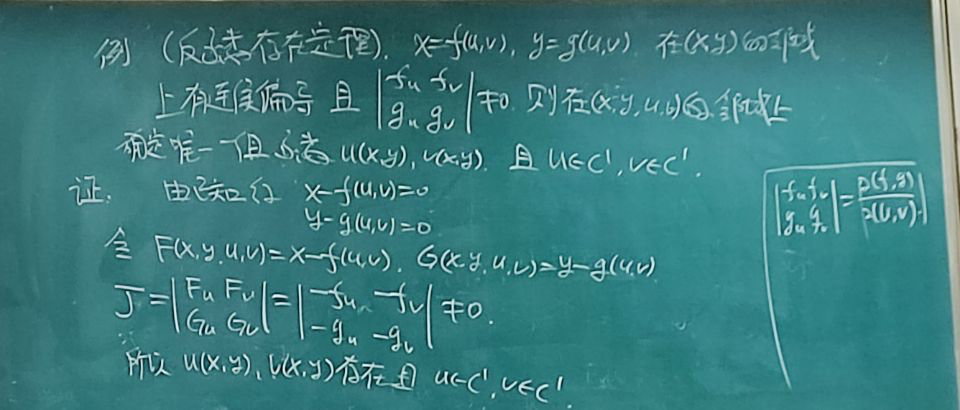 例 (反函数存在定理). x=f(u,v), y=g(u,v) 在(x,y)的邻域
上有连续偏导 且 |f_u f_v; g_u g_v| ≠0. 则在(x,y,u,v)的邻域上
确定唯一组函数 u(x,y), v(x,y). 且 u∈C', v∈C'.
证. 由已知有 x-f(u,v)=0
y-g(u,v)=0.
令 F(x,y,u,v)=x-f(u,v). G(x,y,u,v)=y-g(u,v)
J=|F_u F_v; G_u G_v|=|-f_u -f_v; -g_u -g_v| ≠0.
所以 u(x,y), v(x,y)存在且 u∈C', v∈C'.
|f_u f_v; g_u g_v|=|∂(f,g)/∂(u,v)|